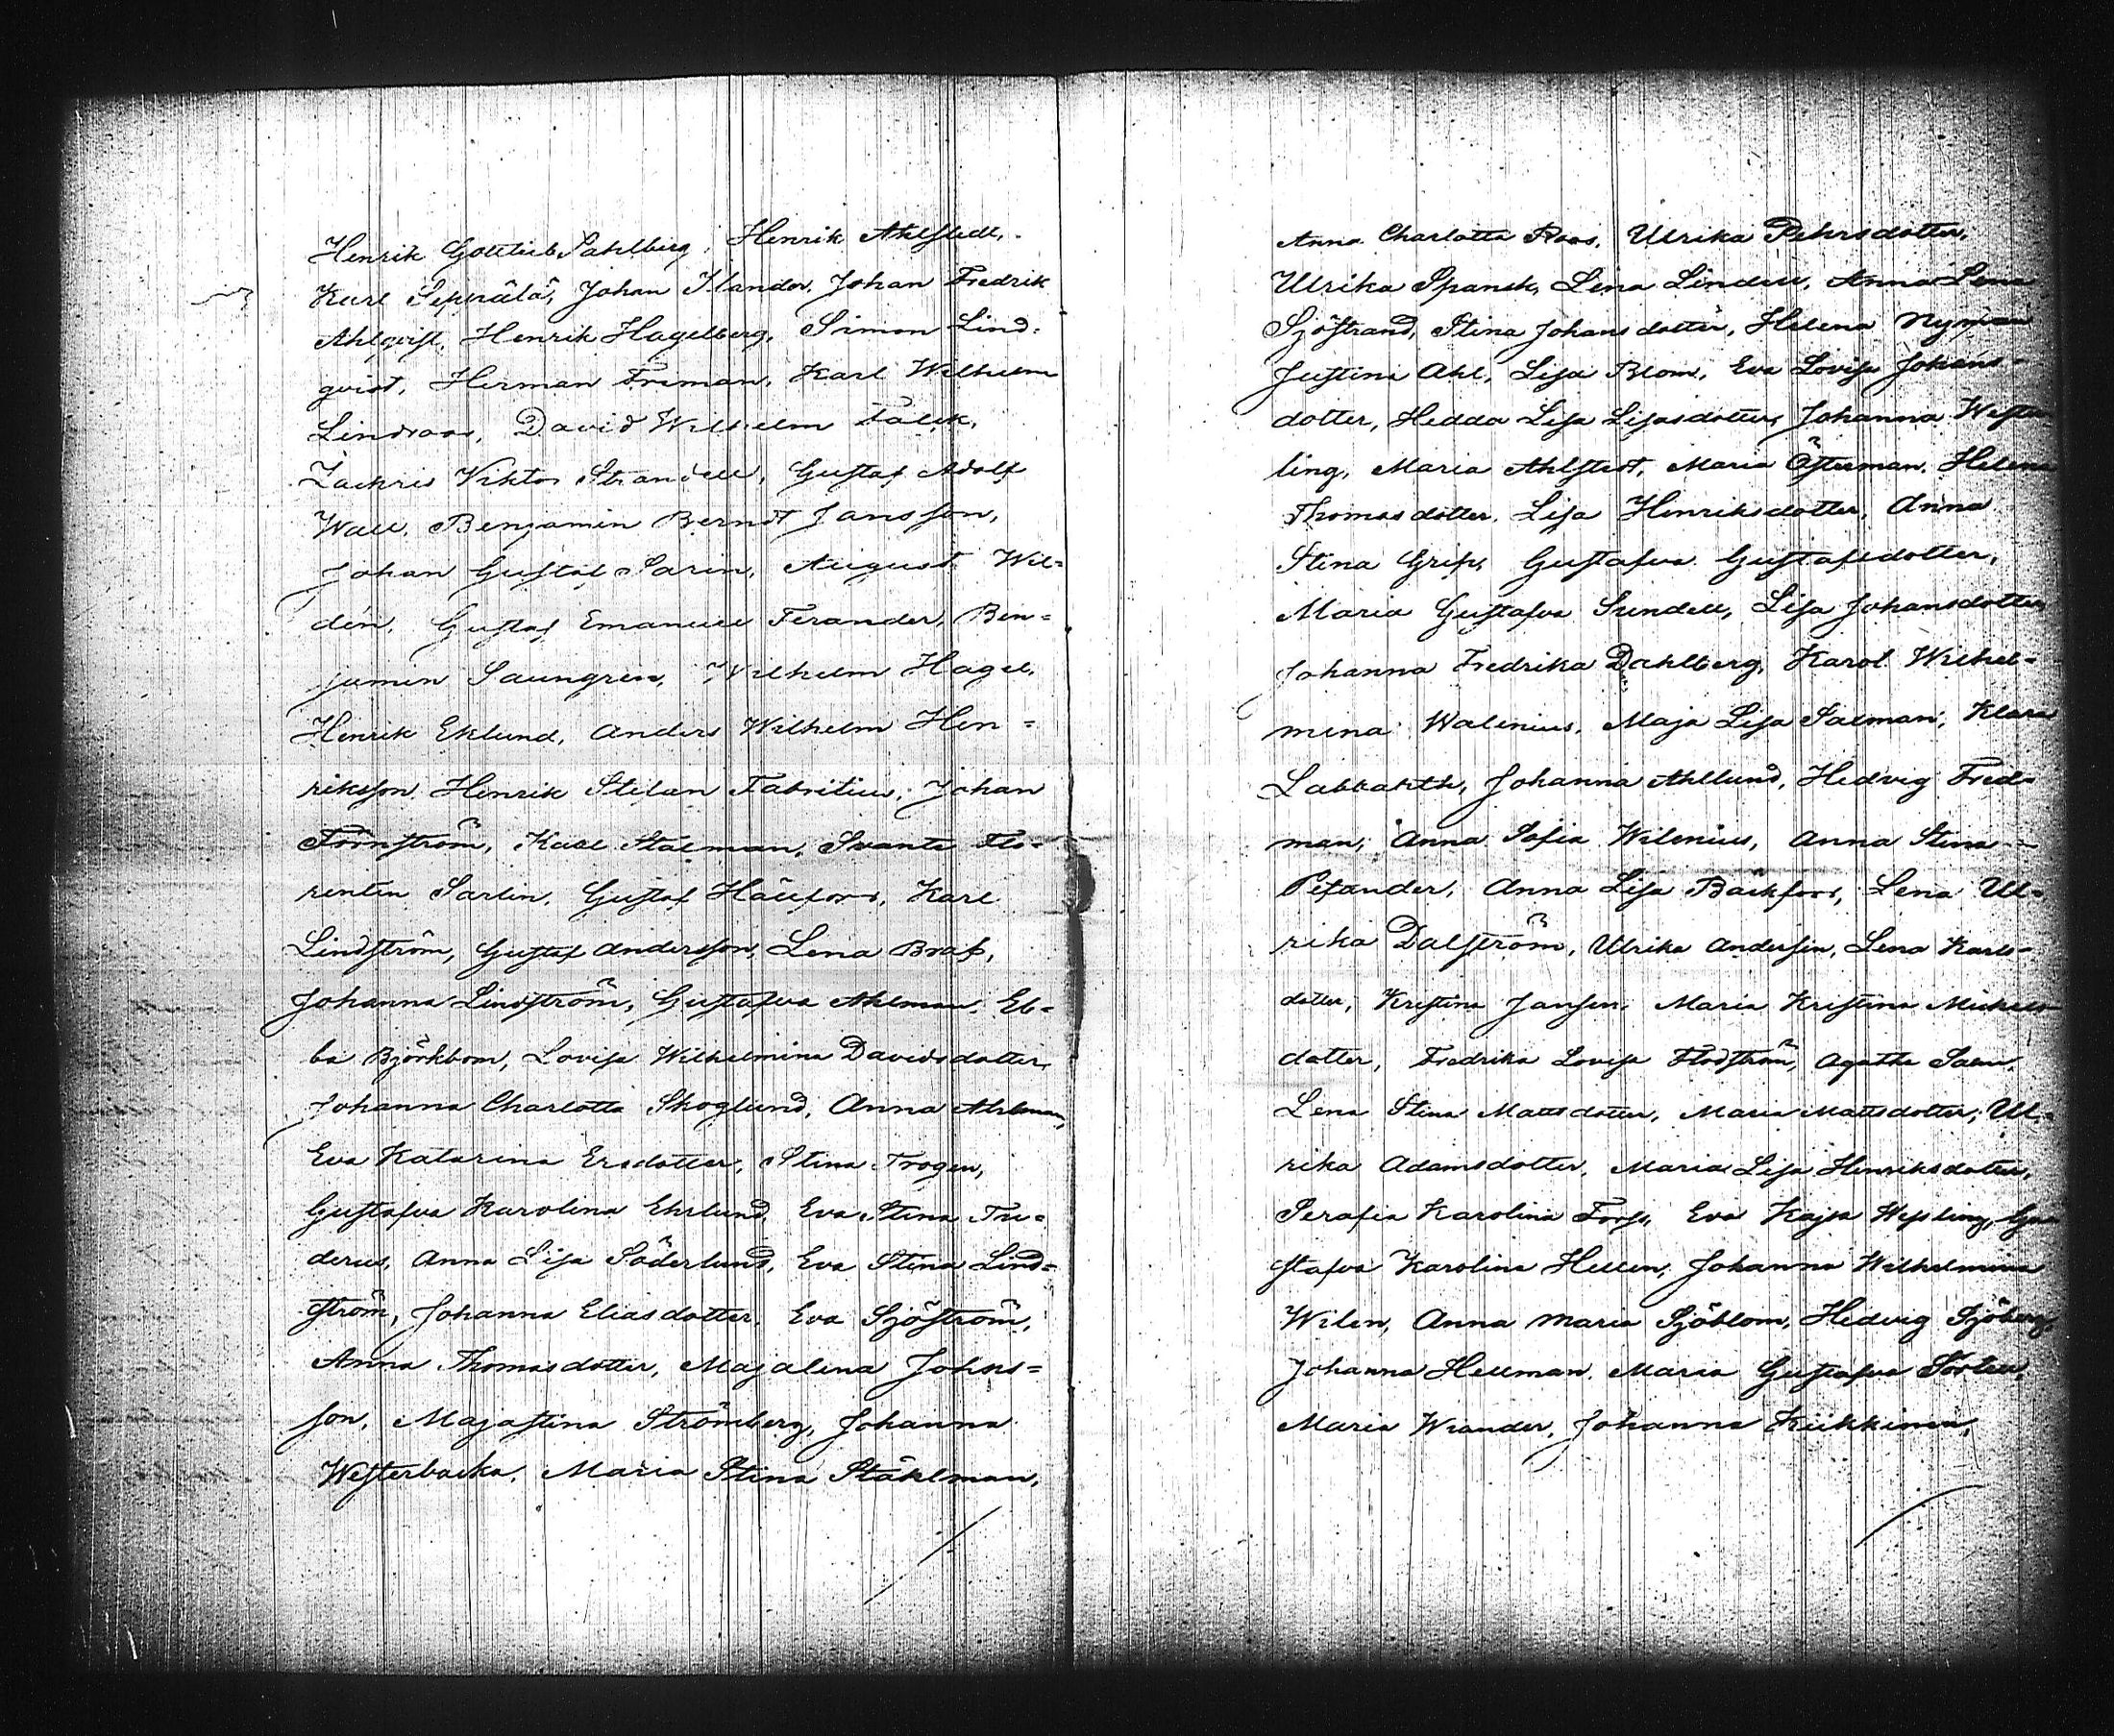 Henrik Gottlieb Sahlberg, Henrik Ahlstedt,
Karl Seppälä, Johan Ilander, Johan Fredrik
Ahlqvist, Henrik Hagelberg, Simon Lind-
qvist, Herman Friman, Karl Wilhelm
Lindroos, David Wilhelm Fälck,
Zachris Viktor Strandell, Gustaf Adolf
Wall, Benjamin Berndt Jansson,
Johan Gustaf Sarin, August Wil-
dén, Gustaf Emanuel Ferander, Ben-
jamin Saungren, Wilhelm Hagel,
Henrik Eklund, Anders Wilhelm Hen-
riksson, Henrik Stefan Fabritius, Johan
Törnström, Karl Stålman, Svante Flo-
rentin Sarlin, Gustaf Hällfors, Karl
Lindström, Gustaf Andersson, Lena Braf,
Johanna Lindström, Gustafva Ahlman, Eb-
ba Björkbom, Lovisa Wilhelmina Davidsdotter,
Johanna Charlotta Skoglund, Anna Ahlman,
Eva Katarina Ersdotter, Stina Trogen,
Gustafva Karolina Ehrlund, Eva Stina
Anna Lisa Söderlund, Eva Stina Lind-
ström, Johanna Eliasdotter, Eva Sjöström,
Anna Thomasdotter, Majalena Johns-
son, Majastina Strömberg, Johanna
Westerbacka, Maria Stina Ståhlman,
Anna Charlotta Roos, Ulrika Pehrsdotter,
Ulrika Spansk, Lina Lindell, Anna Lena
Sjöstrand, Stina Johansdotter, Helena Nyman
Justina Ahl, Lisa Blom, Eva Lovisa Johans-
dotter, Hedda Lisa Lisasdotter, Johanna Wester-
ling, Maria Ahlstedt, Maria Österman, Helena
Thomasdotter, Lisa Henriksdotter, Anna
Stina Grip, Gustafva Gustafsdotter,
Maria Gustafva Sundell, Lisa Johansdotter
Johanna Fredrika Dahlberg, Karol. Wilhel-
mina Walenius, Maja Lisa Salman, Klara
Johanna Ahllund, Hedvig Fred-
man, Anna Sofia Wilenius, Anna Stina
Petander, Anna Lisa Bäckfors, Lena Ul-
rika Dalström, Ulrika Andersin, Lena Karls-
dotter, Kristina Jansen, Maria Kristina Mickels-
dotter, Fredrika Lovisa Flodström, Agatha Salm,
Lena Stina Mattsdotter, Maria Mattsdotter, Ul-
rika Adamsdotter, Maria Lisa Henriksdotter,
Serafia Karolina Forss, Eva Kajsa Wessling, Gu-
stafva Karolina Hellen, Johanna Wilhelmina
Wilen, Anna Maria Sjöblom, Hedvig Sjöberg,
Johanna Hellman, Maria Gustafva
Maria Wrander, Johanna Kiikkinen,